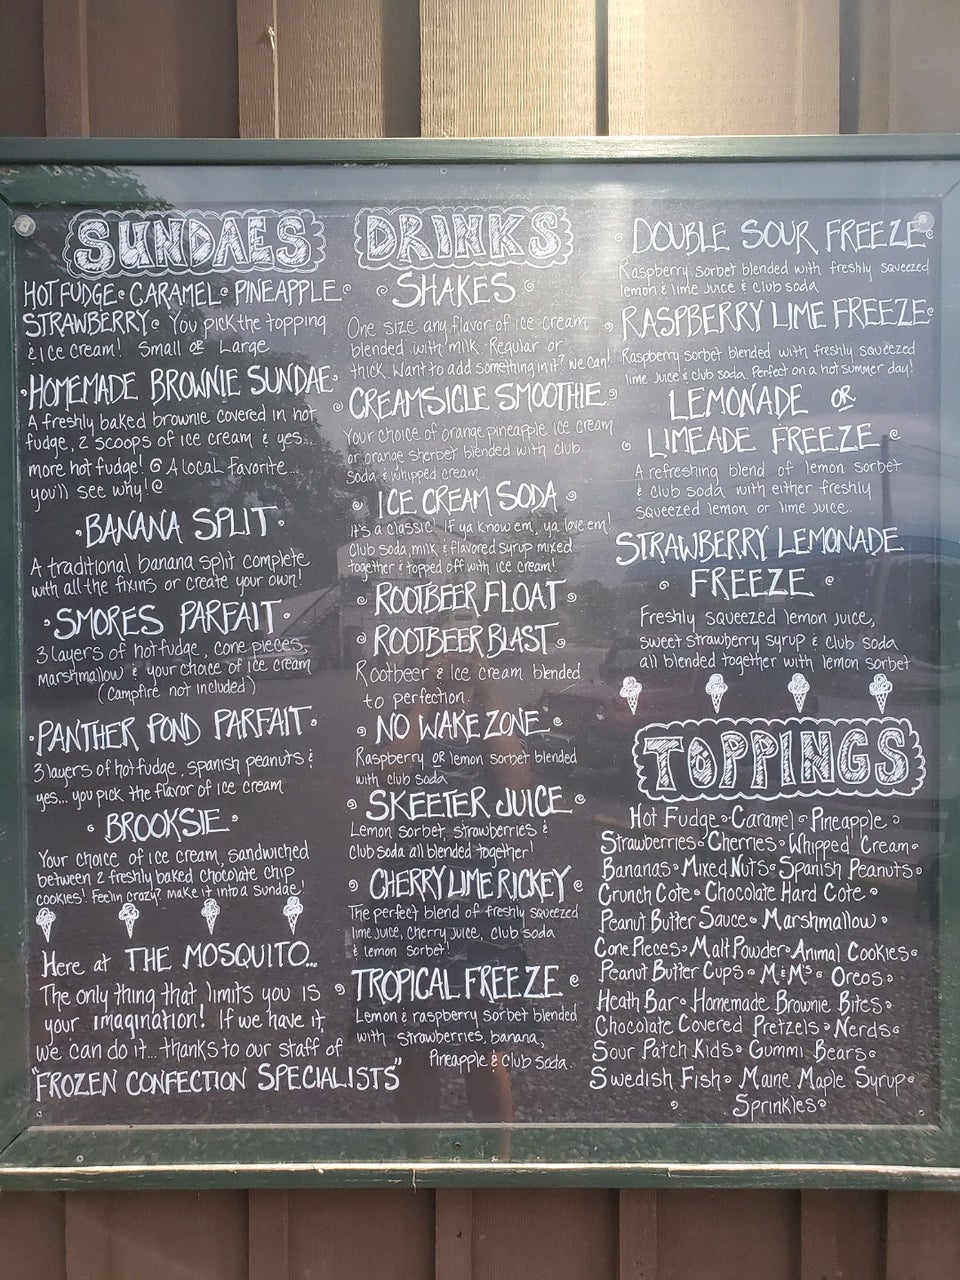 SUNDAES
HOT FUDGE CARAMEL PINEAPPLE
STRAWBERRY You pick the topping
& Ice Cream! Small or Large
HOMEMADE BROWNIE SUNDAE
A freshly baked brownie covered in hot
fudge, 2 scoops of ice cream & yes...
more hot fudge! A local favorite...
you'll see why!
BANANA SPLIT
A traditional banana split complete
with all the fixins or create your own!
SMORES PARFAIT
3 layers of hot fudge, cone pieces,
marshmallow & your choice of ice cream
(Campfire not included)
PANTHER POND PARFAIT
3 layers of hot fudge, spanish peanuts &
yes... you pick the flavor of ice cream
BROOKSIE
Your choice of ice cream, sandwiched
between 2 freshly baked chocolate chip
cookies! Feelin crazy? make it into a sundae!
Here at THE MOSQUITO...
The only thing that limits you is
your imagination! If we have it,
we can do it... thanks to our staff of
"FROZEN CONFECTION SPECIALISTS"
DRINKS
SHAKES
One size any flavor of ice cream
blended with milk. Regular or
thick. Want to add something in it? we can!
CREAMSICLE SMOOTHIE
Your choice of orange pineapple ice cream
or orange sherbet blended with club
soda & whipped cream.
ICE CREAM SODA
It's a classic! If ya know em, ya love em!
Club soda, milk & flavored syrup mixed
together & topped off with ice cream!
ROOTBEER FLOAT
ROOTBEER BLAST
Rootbeer & Ice cream blended
to perfection.
NO WAKE ZONE
Raspberry or lemon sorbet blended
with club soda
SKEETER JUICE
Lemon sorbet, strawberries &
club soda all blended together!
CHERRY LIME RICKEY
The perfect blend of freshly squeezed
lime juice, cherry juice, club soda
& lemon sorbet!
TROPICAL FREEZE
Lemon & raspberry sorbet blended
with strawberries, banana,
Pineapple & Club soda.
DOUBLE SOUR FREEZE
Raspberry sorbet blended with freshly squeezed
lemon & lime juice & club soda
RASPBERRY LIME FREEZE
Raspberry sorbet blended with freshly squeezed
lime juice & club soda. Perfect on a hot summer day!
LEMONADE OR
LIMEADE FREEZE
A refreshing blend of lemon sorbet
& club soda with either freshly
squeezed lemon or lime juice.
STRAWBERRY LEMONADE
FREEZE
Freshly squeezed lemon juice,
sweet strawberry syrup & club soda
all blended together with lemon sorbet
TOPPINGS
Hot Fudge Caramel Pineapple
Strawberries Cherries Whipped Cream
Bananas Mixed Nuts Spanish Peanuts
Crunch Cote Chocolate Hard Cote
Peanut Butter Sauce Marshmallow
Cone Pieces Malt Powder Animal Cookies
Peanut Butter Cups M&M's Oreos
Heath Bar Homemade Brownie Bites
Chocolate Covered Pretzels Nerds
Sour Patch Kids Gummi Bears
Swedish Fish Maine Maple Syrup
Sprinkles